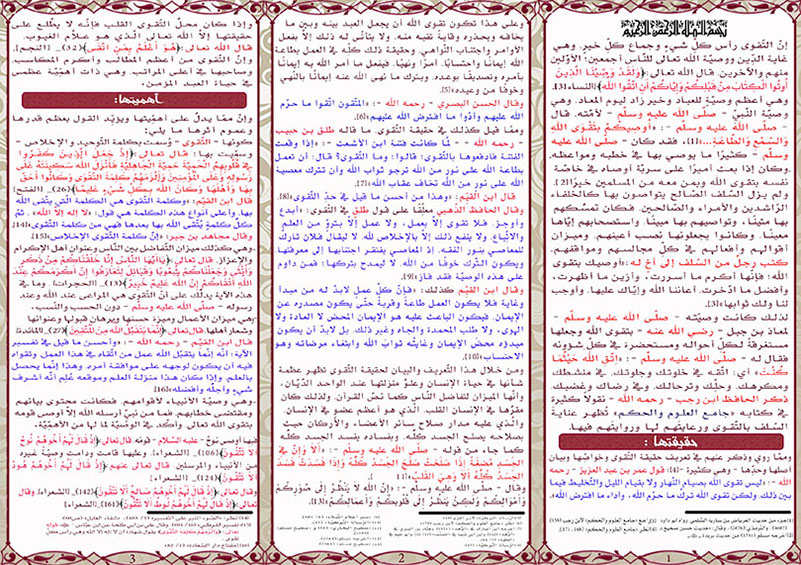 بسم الله الرحمن الرحيم
إنّ التّقوى رأس كلّ شيءٍ وجماع كلّ خيرٍ. وهي
غاية الدّين ووصيّة الله تعالى للنّاس أجمعين؛ الأوّلين
منهم والآخرين. قال الله تعالى: ﴿وَلَقَدْ وَصَّيْنَا الَّذِينَ
أُوتُوا الْكِتَابَ مِنْ قَبْلِكُمْ وَإِيَّاكُمْ أَنِ اتَّقُوا اللَّهَ﴾ [النساء:131].
وهي أعظم وصيّةٍ للعباد وخير زادٍ ليوم المعاد. وهي
وصيّة النّبيّ - صلّى الله عليه وسلّم - لأمّته. قال
- صلّى الله عليه وسلّم -: «أوصيكم بتقوى الله
والسّمع والطّاعة...»[1]، فقد كان - صلّى الله عليه
وسلّم - كثيرًا ما يوصي بها في خطبه ومواعظه.
وكان إذا بعث أميرًا على سريّة أوصاه في خاصّة
نفسه بتقوى الله وبمن معه من المسلمين خيرًا[2].
ولم يزل السّلف الصّالح يتواصون بها كالخلفاء
الرّاشدين والأمراء والصّالحين. فكان تمسّكهم
بها متينًا، وتواصيهم بها مبينًا. واستصحابهم إيّاها
معينًا. وكانوا يجعلونها نُصب أعينهم. وميزان
أقوالهم وأفعالهم في كلّ مجالسهم ومواقفهم.
كتب رجلٌ من السّلف إلى أخٍ له: «أوصيك بتقوى
الله؛ فإنّها أكرم ما أسررت، وأزين ما أظهرت،
وأفضل ما ادّخرت. أعاننا الله وإيّاك عليها. وأوجب
لنا ولك ثوابها»[3].
لذلك كانت وصيّته - صلّى الله عليه وسلّم -
لمعاذ بن جبل - رضي الله عنه - بتقوى الله وجعلها
مستغرقة لكلّ أحواله ومستحضرة في كلّ شؤونه
فقال له - صلّى الله عليه وسلّم -: «اتّق الله حيثما
كنت» أي: اتّقه في خلوتك وجلوتك. في منشطك
ومكرهك. وحلّك وترحالك. وفي رضاك وغضبك.
ذكر الحافظ ابن رجب - رحمه الله - نقولًا كثيرة
في كتابه «جامع العلوم والحكم» تُظهر عناية
السّلف بالتّقوى ورعايتهم لها وروايتهم فيها.
حقيقتها :
وممّا روي وذكر عنهم في تعريف حقيقة التّقوى وخواصّها وبيان
أصلها وحدّها - وهي كثيرة -[4]: قول عمر بن عبد العزيز - رحمه
الله -: «ليس تقوى الله بصيام النّهار ولا بقيام الليل والتّخليط فيما
بين ذلك. ولكن تقوى الله ترك ما حرّم الله، وأداء ما افترض الله».
1
وعلى هذا تكون تقوى الله أن يجعل العبد بينه وبين ما
يخافه ويحذره وقايةً تقيه منه. ولا يتأتّى له ذلك إلّا بفعل
الأوامر واجتناب النّواهي. وحقيقة ذلك كلّه في العمل بطاعة
الله إيمانًا واحتسابًا. أمرًا ونهيًا. فيفعل ما أمر الله به إيمانًا
بأمره وتصديقًا بوعده. ويترك ما نهى الله عنه إيمانًا بالنّهي
وخوفًا من وعيده[5].
وقال الحسن البصري - رحمه الله -: «المتّقون اتّقوا ما حرّم
الله عليهم وأدّوا ما افترض الله عليهم»[6].
وممّا قيل كذلك في حقيقة التّقوى. ما قاله طلق بن حبيب
- رحمه الله -: لمّا كانت فتنة ابن الأشعث -: «إذا وقعت
الفتنة فادفعوها بالتّقوى؛ قالوا: وما التّقوى؟ قال: أن تعمل
بطاعة الله على نور من الله ترجو ثواب الله وأن تترك معصية
الله على نور من الله تخاف عقاب الله»[7].
قال ابن القيّم: «وهذا من أحسن ما قيل في حدّ التّقوى»[8].
وقال الحافظ الذّهبي معلّقًا على قول طلق في التّقوى: «أبدع
وأوجز. فلا تقوى إلّا بعمل، ولا عمل إلّا بتروٍّ من العلم
والاتّباع. ولا ينفع ذلك إلّا بالإخلاص لله. لا ليقال فلان تارك
للمعاصي بنور الفقه؛ إذ المعاصي يفتقر اجتنابها إلى معرفتها
ويكون التّرك خوفًا من الله. لا ليُمدح بتركها؛ فمن داوم
على هذه الوصيّة فقد فاز»[9].
وقال ابن القيّم كذلك: «فإنّ كلّ عملٍ لابدّ له من مبدأ
وغاية فلا يكون العمل طاعةً وقربةً حتّى يكون مصدره عن
الإيمان. فيكون الباعث عليه هو الإيمان المحض لا العادة ولا
الهوى. ولا طلب المحمدة والجاه وغير ذلك. بل لابدّ أن يكون
مبدؤه محض الإيمان وغايته ثواب الله وابتغاء مرضاته وهو
الاحتساب»[10].
ومن خلال هذا التّعريف والبيان لحقيقة التّقوى تظهر عظمة
شأنها في حياة الإنسان وعلوّ منزلتها عند الواحد الدّيّان.
وأنّها الميزان لتفاضل النّاس كما نصّ القرآن. ولذلك كان
مقرّها في الإنسان القلب. الّذي هو أعظم عضوٍ في الإنسان.
والّذي عليه مدار صلاح سائر الأعضاء والأركان حيث
بصلاحه يصلح الجسد كلّه. وبفساده يفسد الجسد كلّه
كما جاء من قوله - صلّى الله عليه وسلّم -: «أَلَا وَإِنَّ فِي
الْجَسَدِ مُضْغَةً إِذَا صَلَحَتْ صَلَحَ الْجَسَدُ كُلُّهُ وَإِذَا فَسَدَتْ فَسَدَ
الْجَسَدُ كُلُّهُ أَلَا وَهِيَ الْقَلْبُ»[11].
وقال - صلّى الله عليه وسلّم -: «إِنَّ اللَّهَ لَا يَنْظُرُ إِلَى صُوَرِكُمْ
وَأَمْوَالِكُمْ وَلَكِنْ يَنْظُرُ إِلَى قُلُوبِكُمْ وَأَعْمَالِكُمْ»[13].
2
وإذا كان محلّ التّقوى القلب فإنّه لا يطّلع على
حقيقتها إلّا الله الّذي هو علّام الغيوب.
قال الله تعالى: ﴿هُوَ أَعْلَمُ بِمَنِ اتَّقَى﴾(32) [النجم].
وإنّ التّقوى من أعظم المطالب وأكرم المكاسب.
وصاحبها في أعلى المراتب. وهي ذات أهميّة عظمى
في حياة العبد المؤمن.
أهميّتها:
وإنّ ممّا يدلّ على أهمّيّتها ويؤيّد القول بعظم قدرها
وعموم أثرها ما يلي:
كونها - التّقوى - وُسمت بكلمة التّوحيد والإخلاص -
وسمّيت بها: قال تعالى: ﴿إِذْ جَعَلَ الَّذِينَ كَفَرُوا
فِي قُلُوبِهِمُ الْحَمِيَّةَ حَمِيَّةَ الْجَاهِلِيَّةِ فَأَنْزَلَ اللَّهُ سَكِينَتَهُ عَلَى
رَسُولِهِ وَعَلَى الْمُؤْمِنِينَ وَأَلْزَمَهُمْ كَلِمَةَ التَّقْوَى وَكَانُوا أَحَقَّ
بِهَا وَأَهْلَهَا وَكَانَ اللَّهُ بِكُلِّ شَيْءٍ عَلِيمًا﴾(26) [الفتح]
قال ابن القيّم: «وكلمة التّقوى هي الكلمة التي يتّقى الله
بها. وأعلى أنواع هذه الكلمة هي قول: «لا إله إلّا الله». ثمّ
كلّ كلمةٍ يُتّقى الله بها بعدها فهي من كلمة التّقوى»[14].
وقال مجاهد بن جبر: «وكلمة التّقوى الإخلاص»[15].
وهي كذلك ميزان التّفاضل بين النّاس وعنوان أهل الإكرام
والإعزاز. قال تعالى: ﴿يَاأَيُّهَا النَّاسُ إِنَّا خَلَقْنَاكُمْ مِنْ ذَكَرٍ
وَأُنْثَى وَجَعَلْنَاكُمْ شُعُوبًا وَقَبَائِلَ لِتَعَارَفُوا إِنَّ أَكْرَمَكُمْ عِنْدَ
اللَّهِ أَتْقَاكُمْ إِنَّ اللَّهَ عَلِيمٌ خَبِيرٌ﴾(13) [الحجرات]. وما في
هذه الآية يدلّك على أنّ التّقوى هي المراعى عند الله وعند
رسوله - صلّى الله عليه وسلّم - دون الحسب والنّسب.
وهي ميزان الأعمال وميزة حسنها وبرهان قبولها وعنوانها
وشعار أهلها. قال تعالى: ﴿إِنَّمَا يَتَقَبَّلُ اللَّهُ مِنَ الْمُتَّقِينَ﴾(27) [المائدة].
قال ابن القيّم - رحمه الله -: «وأحسن ما قيل في تفسير
الآية: أنّه إنّما يتقبّل الله عمل من اتّقاه في هذا العمل. وتقواه
فيه أن يكون لوجهه على موافقة أمره. وهذا إنّما يحصل
بالعلم. وإذا كان هذا منزلة العلم وموقعه عُلم أنّه أشرف
شيءٍ وأجلّه وأفضله»[16].
وهي وصيّة الأنبياء لأقوامهم. فكانت محتوى بيانهم
ومقتضى خطابهم. فما من نبيّ أرسله الله إلّا أوصى قومه
بتقوى الله تعالى. وأكّد في الوصيّة لما لها من الأهمّيّة.
فيها أوصى نوح - عليه السّلام - قومه. قال تعالى: ﴿إِذْ قَالَ لَهُمْ أَخُوهُمْ نُوحٌ
أَلَا تَتَّقُونَ﴾(106) [الشعراء]. وعليها قامت ودامت وصيّة غيره
من الأنبياء والمرسلين. قال تعالى عنهم: ﴿إِذْ قَالَ لَهُمْ أَخُوهُمْ هُودٌ
أَلَا تَتَّقُونَ﴾(124) [الشعراء].
وقال تعالى: ﴿إِذْ قَالَ لَهُمْ أَخُوهُمْ صَالِحٌ أَلَا تَتَّقُونَ﴾(142) [الشعراء]. وقال
تعالى: ﴿إِذْ قَالَ لَهُمْ أَخُوهُمْ لُوطٌ أَلَا تَتَّقُونَ﴾(161) [الشعراء].
3